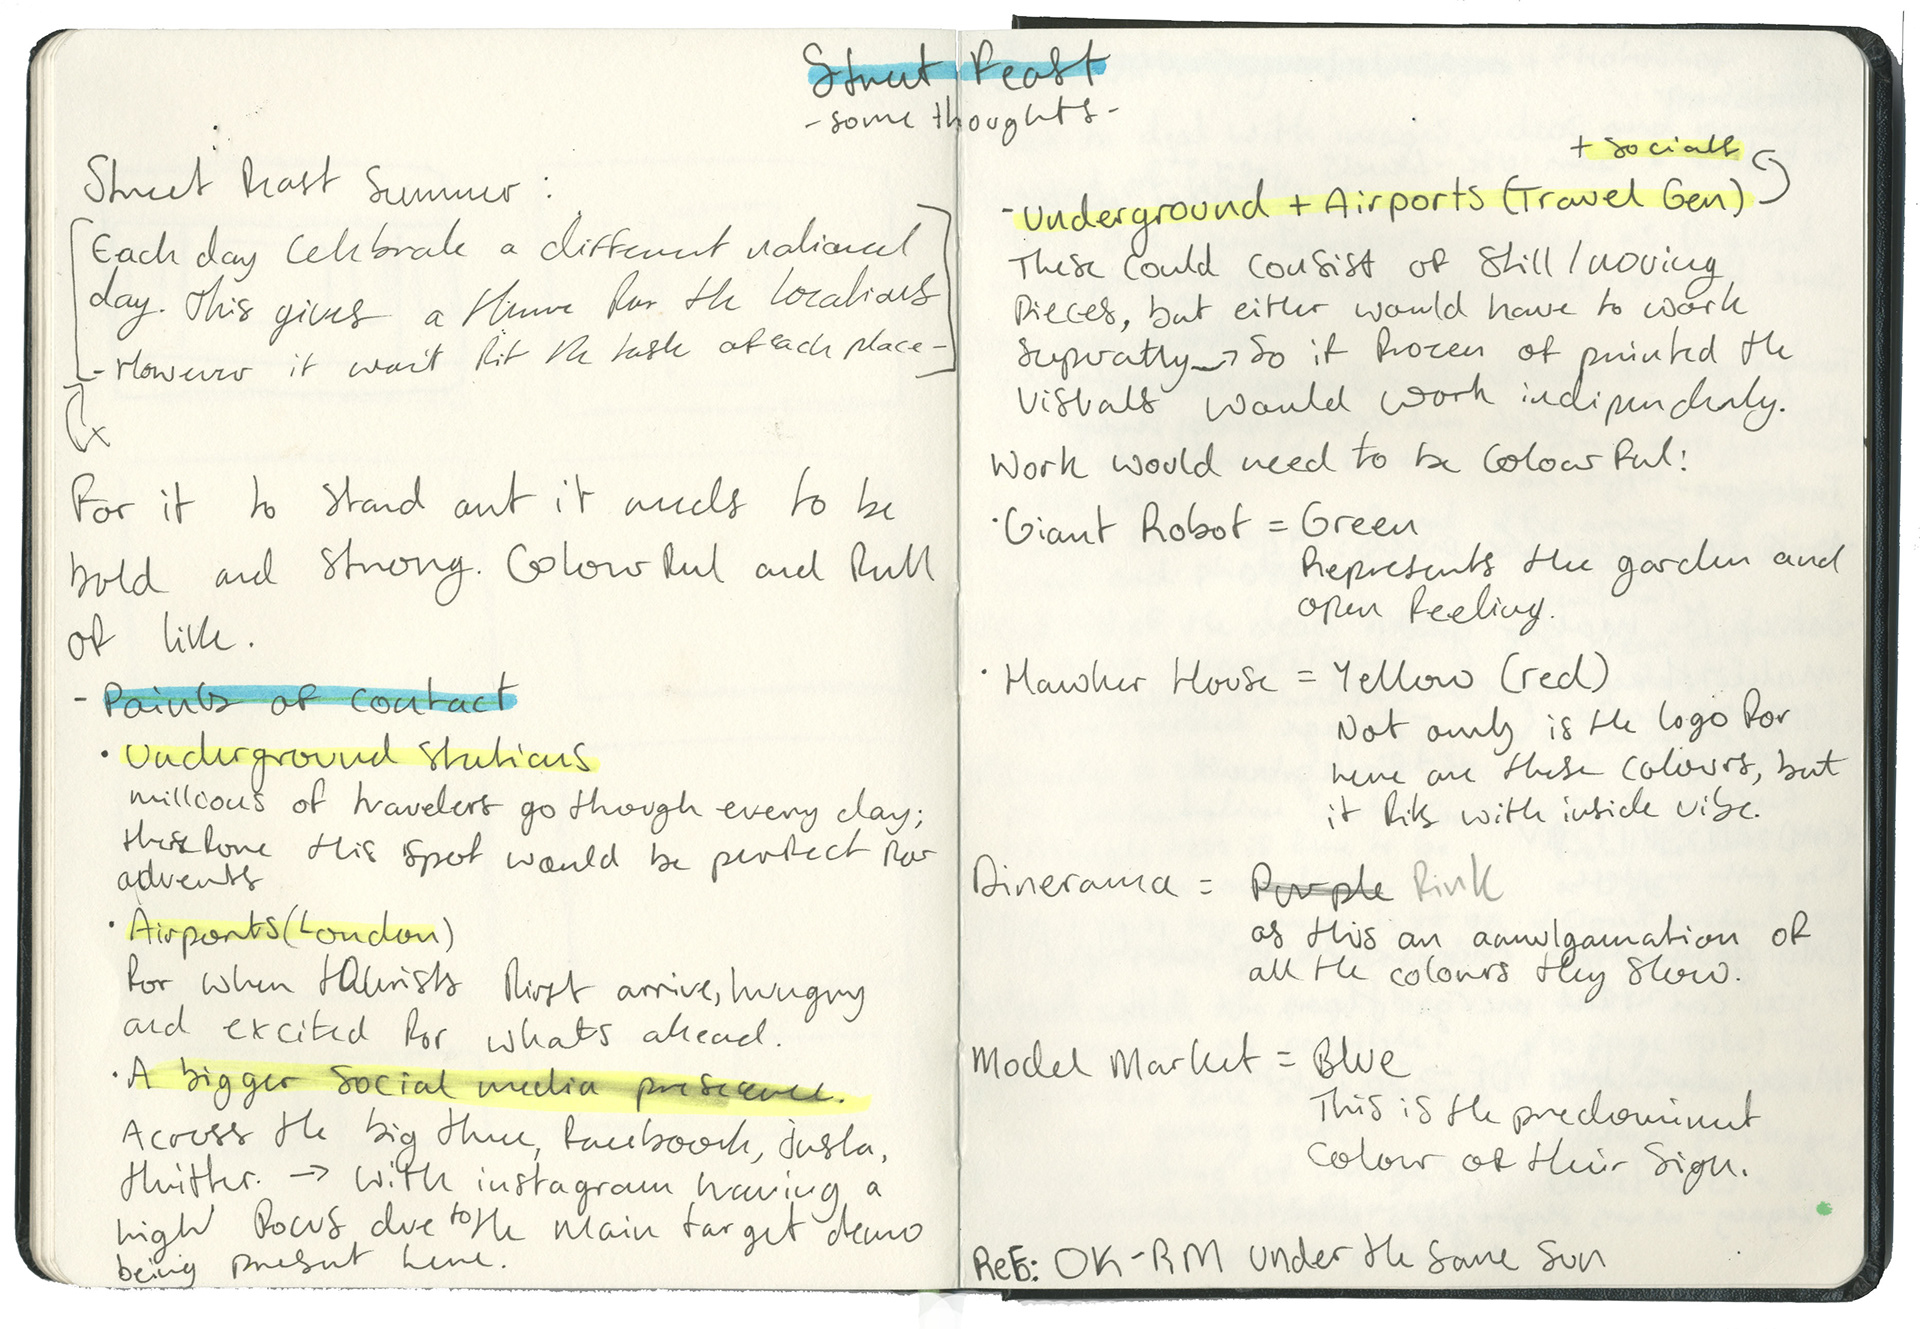 Street Feast
-some thoughts-
Street Feast Summer:
[Each day celebrate a different national
day. This gives a theme for the locations
- However it won't fit the task of each place-]
For it to stand out it needs to be
bold and strong. Colourful and full
of life.
- Points of contact
• Underground stations
millions of travelers go though every day;
therefore this spot would be perfect for
adverts
• Airports (London)
for when tourists first arrive, hungry
and excited for whats ahead.
• A bigger social media presence.
Across the big three, facebook, insta,
twitter. → with instagram having a
high focus due to the main target demo
being present here.
+ socials
- Underground + Airports (Travel Gen)
These could consist of still/moving
pieces, but either would have to work
sepratly → So if frozen of printed the
visuals would work indipendenly.
Work would need to be colourful:
• Giant Robot = Green
Represents the garden and
open feeling.
• Hawker House = Yellow (red)
Not only is the logo for
here are these colours, but
it fits with inside vibe.
Dinerama = Purple Pink
as this an aamulgamation of
all the colours they show.
Model Market = Blue
This is the predominent
colour of their sign.
Ref: OK-RM Under the same sun